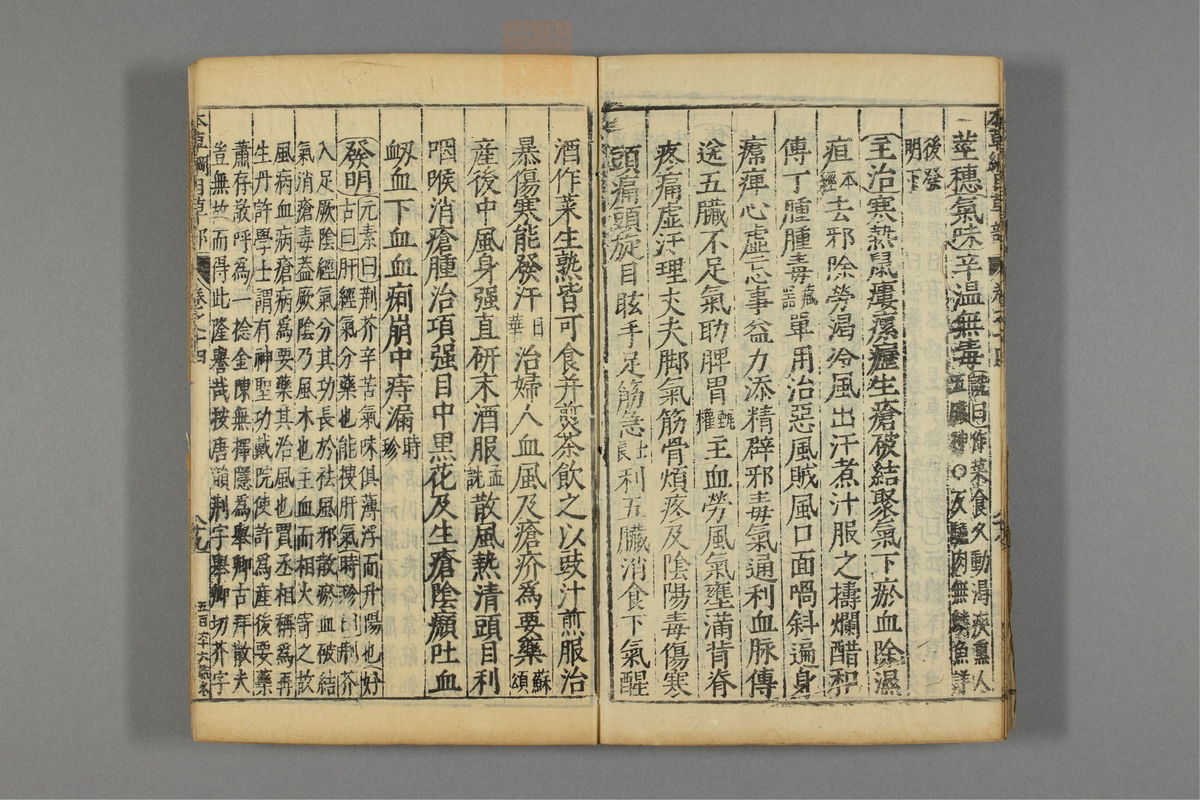 莖穗氣味辛温無毒詵曰作菜食久動渴疾熏人五臟神○反驢肉無鱗魚詳
後發明下
主治寒熱鼠瘻瘰癧生瘡破結聚氣下瘀血除濕
疸本經去邪除勞渴冷風出汗煮汁服之擣爛醋和
傅丁腫腫毒藏器單用治惡風賊風口面喎斜遍身
𤸷痺心虚忘事益力添精辟邪毒氣通利血脉傳
送五臟不足氣助脾胃甄權主血勞風氣壅滿背脊
疼痛虚汗理丈夫脚氣筋骨煩疼及陰陽毒傷寒
頭痛頭旋目眩手足筋急士良利五臟消食下氣醒
酒作菜生熟皆可食并煎茶飲之以豉汁煎服治
暴傷寒能發汗日華治婦人血風及瘡疥爲要藥蘇頌
産後中風身强直研末酒服孟詵散風熱清頭目利
咽喉消瘡腫治項强目中黒花及生瘡陰㿗吐血
衂血下血血痢崩中痔漏時珍
發明元素曰荆芥辛苦氣味俱薄浮而升陽也好
古曰肝經氣分藥也能搜肝氣時珍曰荆芥
入足厥陰經氣分其功長於祛風邪散瘀血破結
氣消瘡毒蓋厥陰乃風木也主血而相火寄之故
風病血病瘡病爲要藥其治風也賈丞相稱爲再
生丹許學士謂有神聖功戴院使許爲産後要藥
蕭存敬呼爲一捻金陳無擇隱爲舉卿古拜散夫
豈無故而得此隆譽哉按唐韻荆字舉卿切芥字
本草綱目草部
卷之十四